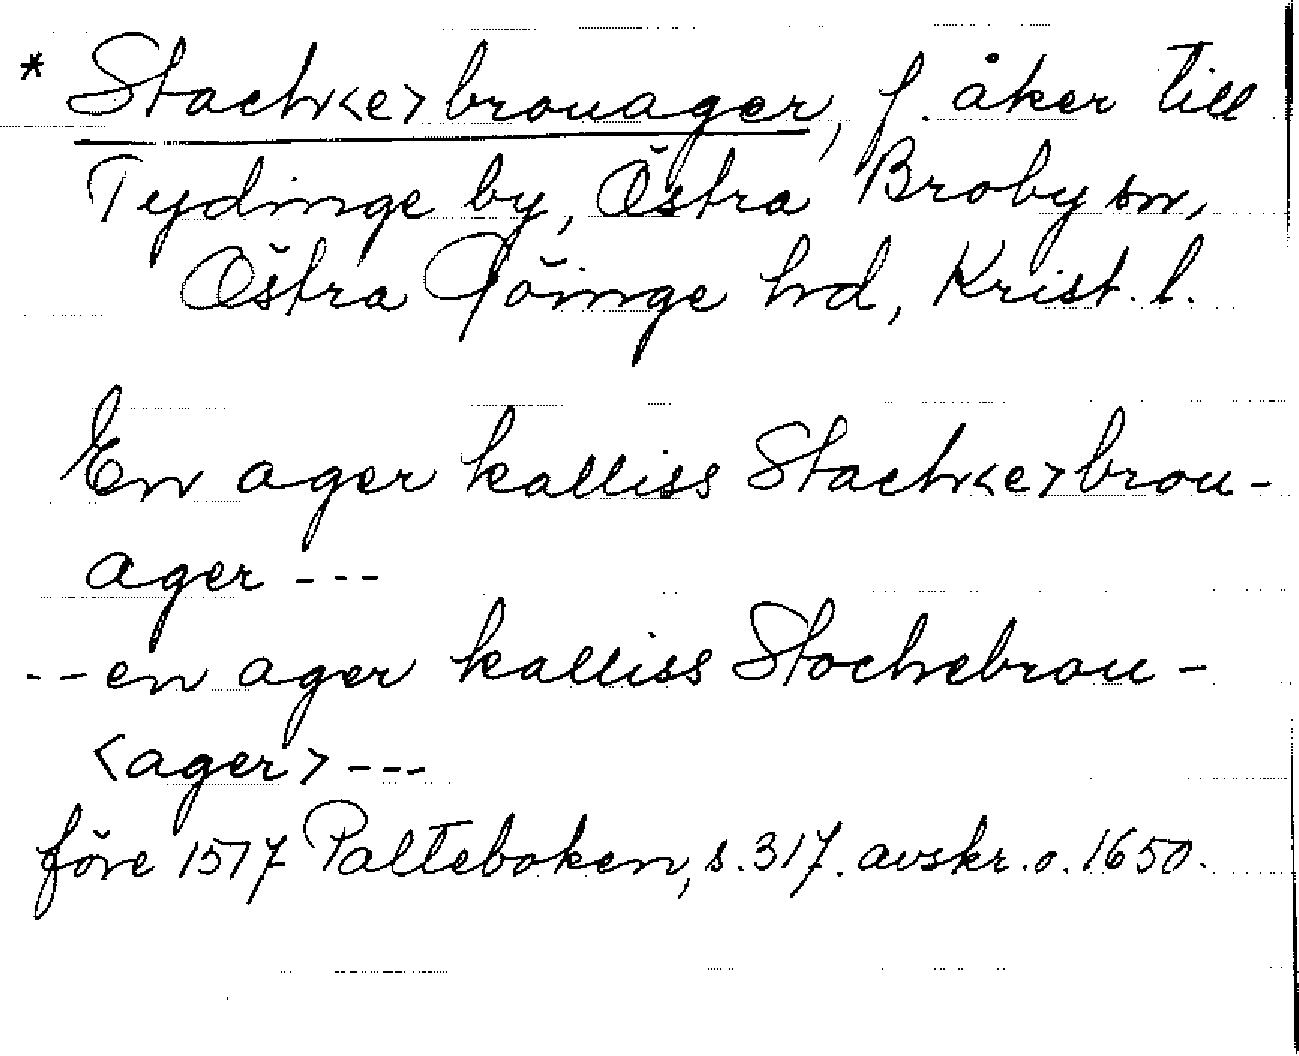 * Stackk<e>brouager, f. åker till
Tydinge by, Östra Broby sn,
Östra Göinge hd, Krist. l.
En ager kalliss Stackk<e>brou-
ager ---
-- en ager kalliss Stockebrou-
<ager> ---
före 1517 Palteboken, s. 317. avskr. o. 1650.